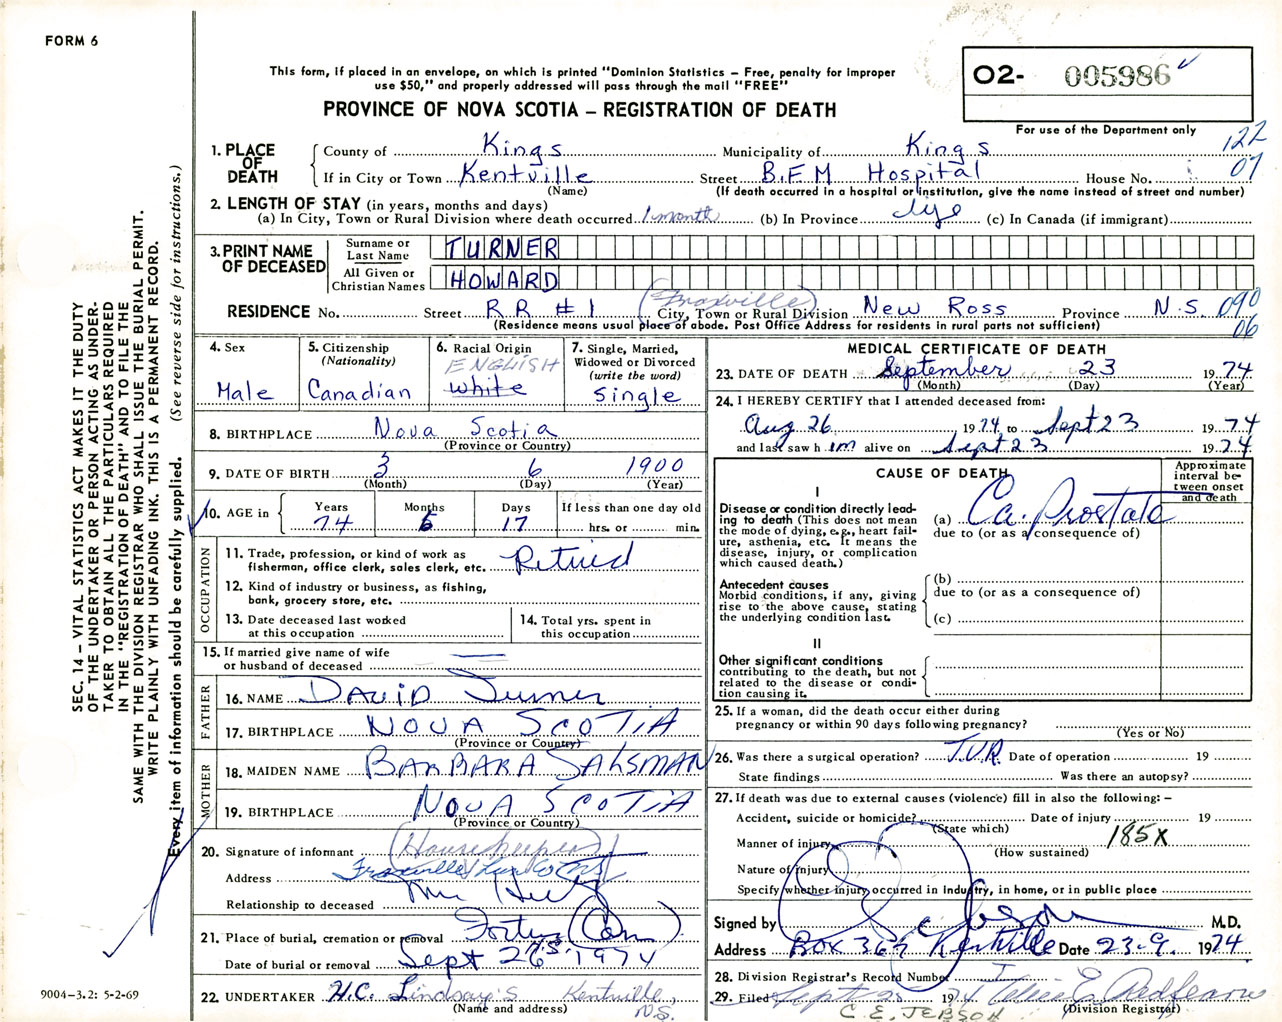 FORM 6
This form, if placed in an envelope, on which is printed "Dominion Statistics – Free, penalty for improper
use $50," and properly addressed will pass through the mail "FREE"
PROVINCE OF NOVA SCOTIA – REGISTRATION OF DEATH
02- 005986
For use of the Department only
122
07
1. PLACE OF DEATH
County of Kings Municipality of Kings
If in City or Town Kentville Street B.F.M Hospital House No.
(Name) (If death occurred in a hospital or institution, give the name instead of street and number)
2. LENGTH OF STAY (in years, months and days)
(a) In City, Town or Rural Division where death occurred 1 month (b) In Province (c) In Canada (if immigrant)
3. PRINT NAME OF DECEASED
Surname or Last Name TURNER
All Given or Christian Names HOWARD
RESIDENCE No. Street RR #1 (Fraxville) City, Town or Rural Division New Ross Province N.S. 090
06
(Residence means usual place of abode. Post Office Address for residents in rural parts not sufficient)
4. Sex
Male
5. Citizenship
(Nationality)
Canadian
6. Racial Origin
ENGLISH
white
7. Single, Married,
Widowed or Divorced
(write the word)
Single
8. BIRTHPLACE Nova Scotia
(Province or Country)
9. DATE OF BIRTH 3 6 1900
(Month) (Day) (Year)
10. AGE in Years Months Days If less than one day old
74 6 17 hrs. or min.
OCCUPATION
11. Trade, profession, or kind of work as
fisherman, office clerk, sales clerk, etc. Retired
12. Kind of industry or business, as fishing,
bank, grocery store, etc.
13. Date deceased last worked
at this occupation
14. Total yrs. spent in
this occupation
15. If married give name of wife
or husband of deceased
FATHER
16. NAME DAVID Turner
17. BIRTHPLACE NOVA SCOTIA
(Province or Country)
MOTHER
18. MAIDEN NAME BARBARA SALSMAN
19. BIRTHPLACE NOVA SCOTIA
(Province or Country)
20. Signature of informant (Housekeeper)
Address Fraxville
Relationship to deceased
21. Place of burial, cremation or removal (Cem)
Date of burial or removal Sept 26 1974
22. UNDERTAKER H.C. Lindsay's Kentville, N.S.
(Name and address)
MEDICAL CERTIFICATE OF DEATH
23. DATE OF DEATH September 23 1974
(Month) (Day) (Year)
24. I HEREBY CERTIFY that I attended deceased from:
Aug 26 1974 to Sept 23 1974
and last saw him alive on Sept 23 1974
CAUSE OF DEATH
Approximate
interval be-
tween onset
and death
I
Disease or condition directly lead-
ing to death (This does not mean
the mode of dying, e.g., heart fail-
ure, asthenia, etc. It means the
disease, injury, or complication
which caused death.)
(a) Ca. Prostate
due to (or as a consequence of)
Antecedent causes
Morbid conditions, if any, giving
rise to the above cause, stating
the underlying condition last.
(b)
due to (or as a consequence of)
(c)
II
Other significant conditions
contributing to the death, but not
related to the disease or condi-
tion causing it.
25. If a woman, did the death occur either during
pregnancy or within 90 days following pregnancy?
(Yes or No)
26. Was there a surgical operation? T.U.R. Date of operation 19
State findings Was there an autopsy?
27. If death was due to external causes (violence) fill in also the following: –
Accident, suicide or homicide? Date of injury 19
(State which)
Manner of injury 185X
(How sustained)
Nature of injury
Specify whether injury occurred in industry, in home, or in public place
Signed by M.D.
Address Box 367 Kentville Date 23-9. 1974
28. Division Registrar's Record Number
29. Filed Sept 25 1974
(Division Registrar)
C. E. JEBSON
SEC. 14 – VITAL STATISTICS ACT MAKES IT THE DUTY
OF THE UNDERTAKER OR PERSON ACTING AS UNDER-
TAKER TO OBTAIN ALL THE PARTICULARS REQUIRED
IN THE "REGISTRATION OF DEATH" AND TO FILE THE
SAME WITH THE DIVISION REGISTRAR WHO SHALL ISSUE THE BURIAL PERMIT.
WRITE PLAINLY WITH UNFADING INK. THIS IS A PERMANENT RECORD.
Every item of information should be carefully supplied. (See reverse side for instructions.)
9004-3.2: 5-2-69